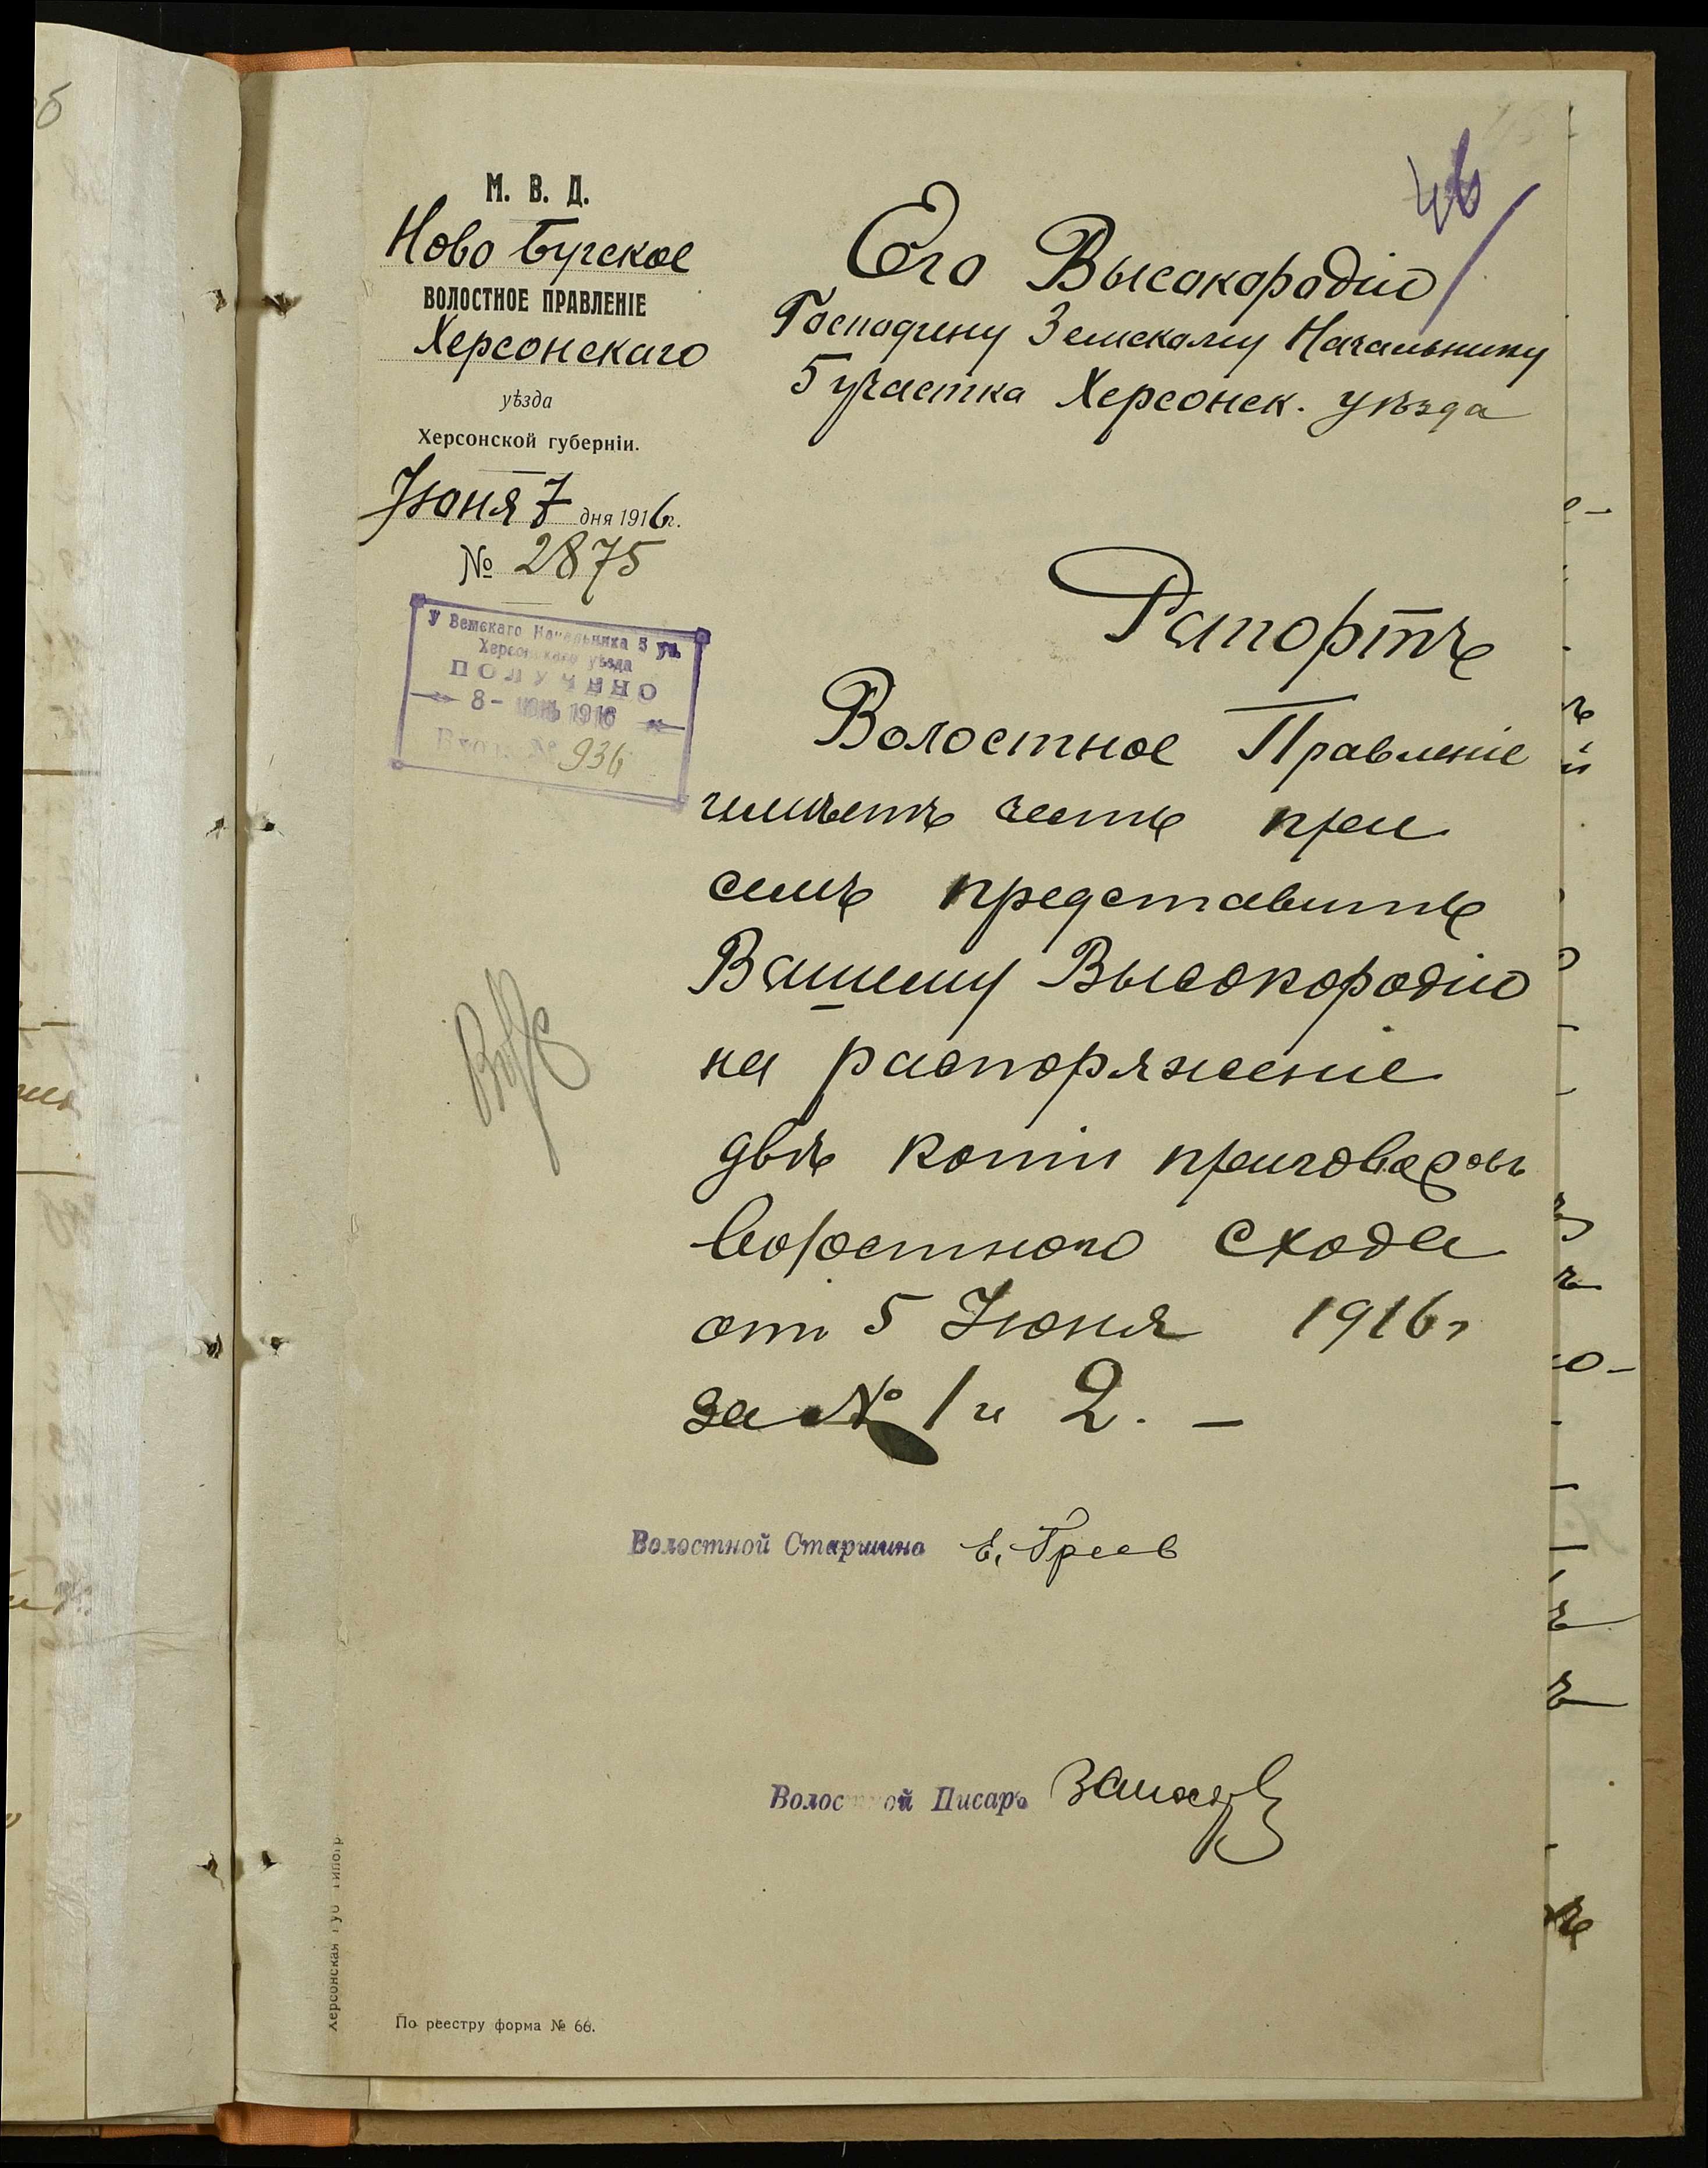 46
М. В. Д.
Ново Бугское
ВОЛОСТНОЕ ПРАВЛЕНІЕ
Херсонскаго
уѣзда
Херсонской губерніи.
Іюня 7 дня 1916г.
№ 2875
У Земскаго Начальника 5 уч.
Херсонскаго уѣзда
ПОЛУЧЕНО
8 - ІЮН 1916
Вход. № 936
Его Высокородію
Господину Земскому Начальнику
5 участка Херсонск. уѣзда
Рапортъ
Волостное Правленіе
имѣетъ честь при
семъ представить
Вашему Высокородію
на распоряженіе
двѣ копіи приговоровъ
волостного схода
отъ 5 Іюня 1916 г
за № 1 и 2. —
Волостной Старшина Е. Греев
Волостной Писарь
По реестру форма № 66.
Херсонская Губ. Типогр.